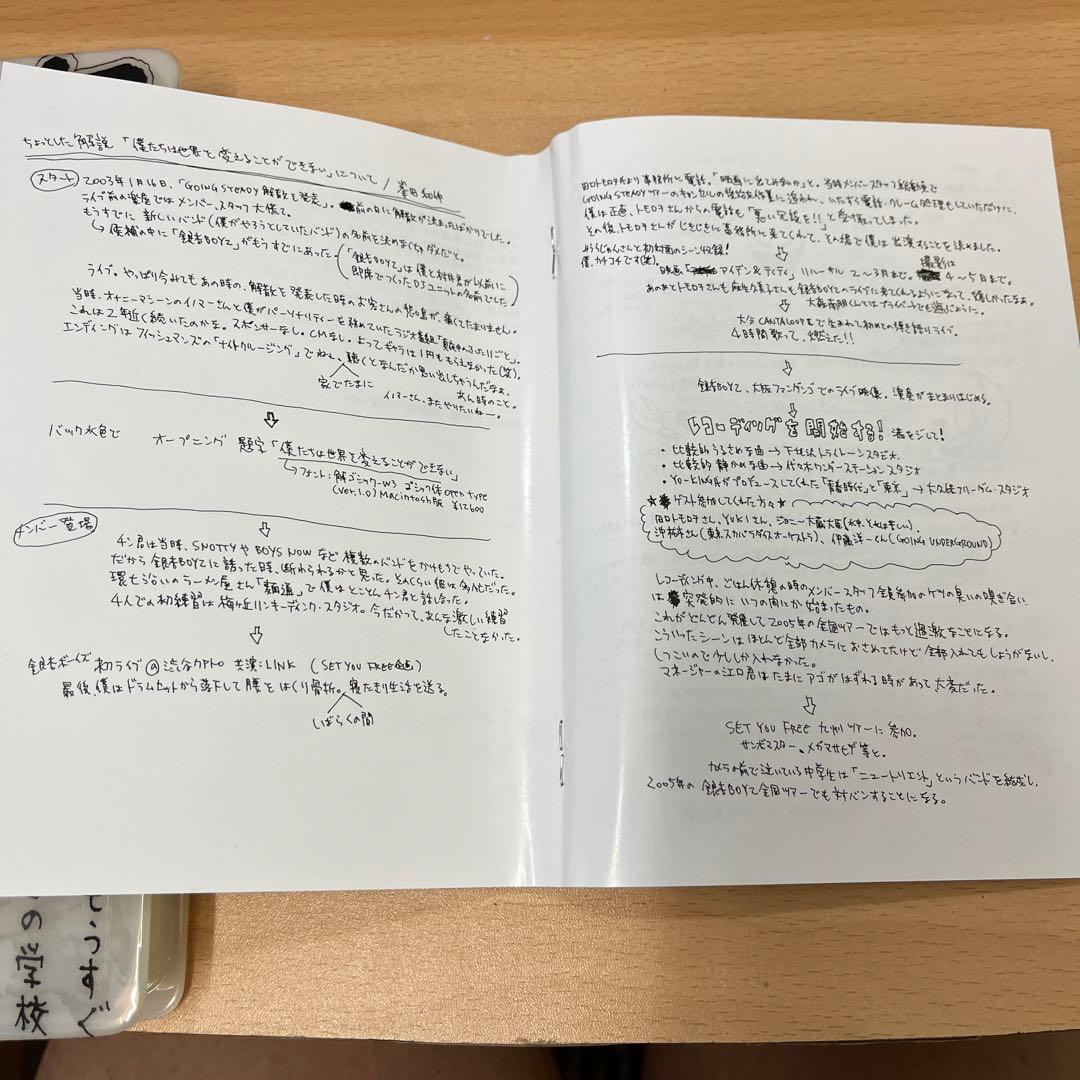 ちょっとした解説「僕たちは世界を変えることができない」について / 峯田和伸
スタート
2003年1月16日、「GOING STEADY解散を発表」。前の日に解散が決まったばかりでした。
ライブ前の楽屋ではメンバー、スタッフ大慌て。
もうすでに新しいバンド(僕がやろうとしていたバンド)の名前を決めなくちゃダメだと。
↳候補の中に「銀杏BOYZ」がもうすでにあった。
(「銀杏BOYZ」は僕と村井君が以前に
即席でつくったDJユニットの名前でした)
ライブ。やっぱり今でもあの時の、解散を発表した時のお客さんの悲鳴が、痛くてたまりません。
当時、オナニーマシーンのイノマーさんと僕がパーソナリティーを務めていたラジオ番組「真夜中のひとりごと」。
これは2年近く続いたのかな。スポンサーなし。CMなし。よってギャラは1円ももらえなかった(笑)。
エンディングはフィッシュマンズの「ナイトクルージング」でねぇ、聴くとなんだか思い出しちゃうんだなぁ、
家でたまに
あん時のこと。
イノマーさん、またやりたいねー。
⇩
バック水色で オープニング 題字「僕たちは世界を変えることができない」
↳フォント:解ゴシックーW3 ゴシック体 open type
(ver.1.0) Macintosh版 ¥12600
⇩
メンバー登場
チン君は当時、SNOTTYやBOYS NOWなど複数のバンドをかけもちでやっていた。
だから銀杏BOYZに誘った時、断わられるかと思った。そんくらい彼は多忙だった。
環七沿いのラーメン屋さん「麺道」で僕はとことんチン君と話し合った。
4人での初練習は梅ヶ丘リンキーディンク・スタジオ。今だかって、あんな激しい練習
したことなかった。
⇩
銀杏ボーイズ 初ライブ@渋谷クアトロ 共演:LINK (SET YOU FREE企画)
最後、僕はドラムセットから落下して腰をはくり骨折。寝たきり生活を送る。
しばらくの間
田口トモロヲ氏より事務所に電話。「映画に出てみないか」と。当時メンバースタッフ総動員で
GOING STEADYツアーのキャンセルの後始末作業に追われ、いたずら電話、クレーム処理もしていただけに、
僕は正直、トモロヲさんからの電話も「悪い冗談を!!」と受け取ってしまった。
その後、トモロヲさんがじきじきに事務所に来てくれて、その席で僕は出演することを決めました。
みうらじゅんさんと初対面のシーン収録!
僕、カチコチです(笑)。
撮影は
映画「アイデン&ティティ」リハーサル 2〜3月まで。 4〜5月まで。
あのあとトモロヲさんも麻生久美子さんも銀杏BOYZのライブに来てくれるようになって、嬉しかったなぁ。
↳大森南朋くんとはプライベートでも遊ぶように。
⇩
大分CANTALOOPⅡで生まれて初めての弾き語りライブ。
4時間歌って、燃えた!!
⇩
銀杏BOYZ、大阪ファンダンゴでのライブ映像。演奏がまとまりはじめる。
⇩
レコーディングを開始する! 満をじして!
・比較的うるさめな曲→下北沢トライトーンスタジオ。
・比較的静かめな曲→代々木ワンダーステーションスタジオ
・YO-KING氏がプロデュースしてくれた「青春時代」と「東京」→大久保フリーダム・スタジオ
★ゲスト参加してくれた方々★
田口トモロヲさん、YUKIさん、ジョニー大蔵大臣(水中、それは苦しい)、
沖祐市さん(東京スカパラダイスオーケストラ)、伊藤洋一くん(GOING UNDERGROUND)
レコーディング中、ごはん休憩の時のメンバースタッフ全員参加のゲツの臭いの嗅ぎ合い
は突発的にいつの間にか始まったもの。
これがどんどん発展して2005年の全国ツアーではもっと過激なことになる。
こういったシーンはほとんど全部カメラにおさめてたけど全部入れてもしょうがないし、
しつこいので少ししか入れなかった。
マネージャーの江口君はたまにアゴがはずれる時があって大変だった。
⇩
SET YOU FREE 九州ツアーに参加。
サンボマスター、メガマサヒデ等と。
カメラの前で泣いている中学生は「ニュートリエント」というバンドを結成し、
2005年の銀杏BOYZ全国ツアーでも対バンすることになる。
とうすぐ
の学校